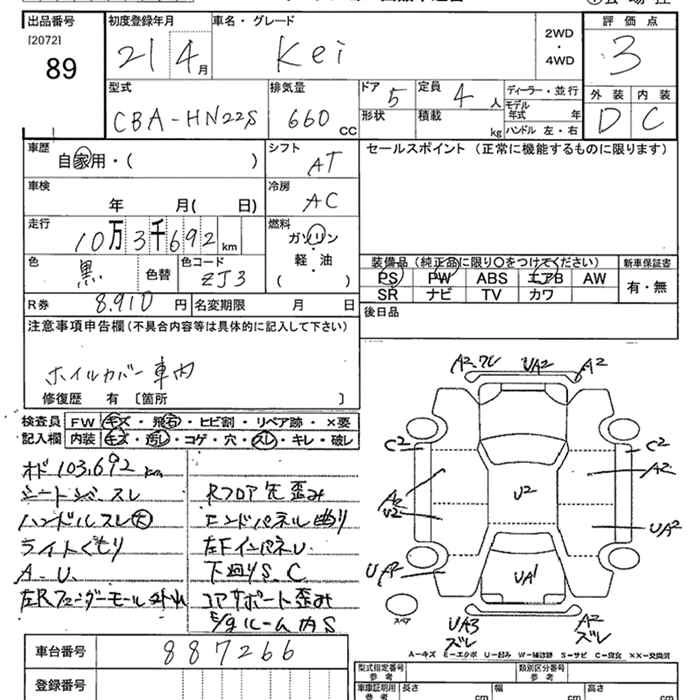 出品番号 初度登録年月 車名・グレード 2WD・4WD 評価点
[2072]
89 21 4月 Kei 3
型式 排気量 ドア 5 定員 4人 ディーラー・並行 外装 内装
CBA-HN22S 660 CC 形状 積載 kg モデル年式 年 D C
ハンドル 左・右
車歴 自家用・( ) シフト AT セールスポイント (正常に機能するものに限ります)
車検 年 月( 日) 冷房 AC
走行 10万3千692km 燃料 ガソリン・軽・油 ( )
色 黒 色替 色コード ZJ3 装備品 (純正品に限り○をつけてください) 新車保証書
PS PW ABS エアB AW 有・無
R券 8.910円 名変期限 月 日 SR ナビ TV カワ
注意事項申告欄 (不具合内容等は具体的に記入して下さい) 後日品
ホイルカバー車内
修復歴 有 〔箇所 〕
検査員 FW キズ・飛石・ヒビ割・リペア跡・×要
記入欄 内装 キズ・汚レ・コゲ・穴・スレ・キレ・破レ
オド103,692km
シートシミ・スレ Rフロア先歪み
ハンドルスレ大 エンドパネル曲り
ライトくもり 左FインパネU.
A.U. 下廻りS.C
左Rフェンダーモール外れ コアサポート歪み
E/gルーム内S
A2.ワレ UA2 A2
C2 C2
A2 U2 A2
U2 UA2
UA2 UA1
スペア UA3 ズレ A2 ズレ
A-キズ E-エクボ U-凹み W-補修跡 S-サビ C-腐食 ××-交換済
車台番号 887266 型式指定番号 参考 類別区分番号 参考
登録番号 車庫証明用 参考 長さ cm 幅 cm 高さ cm